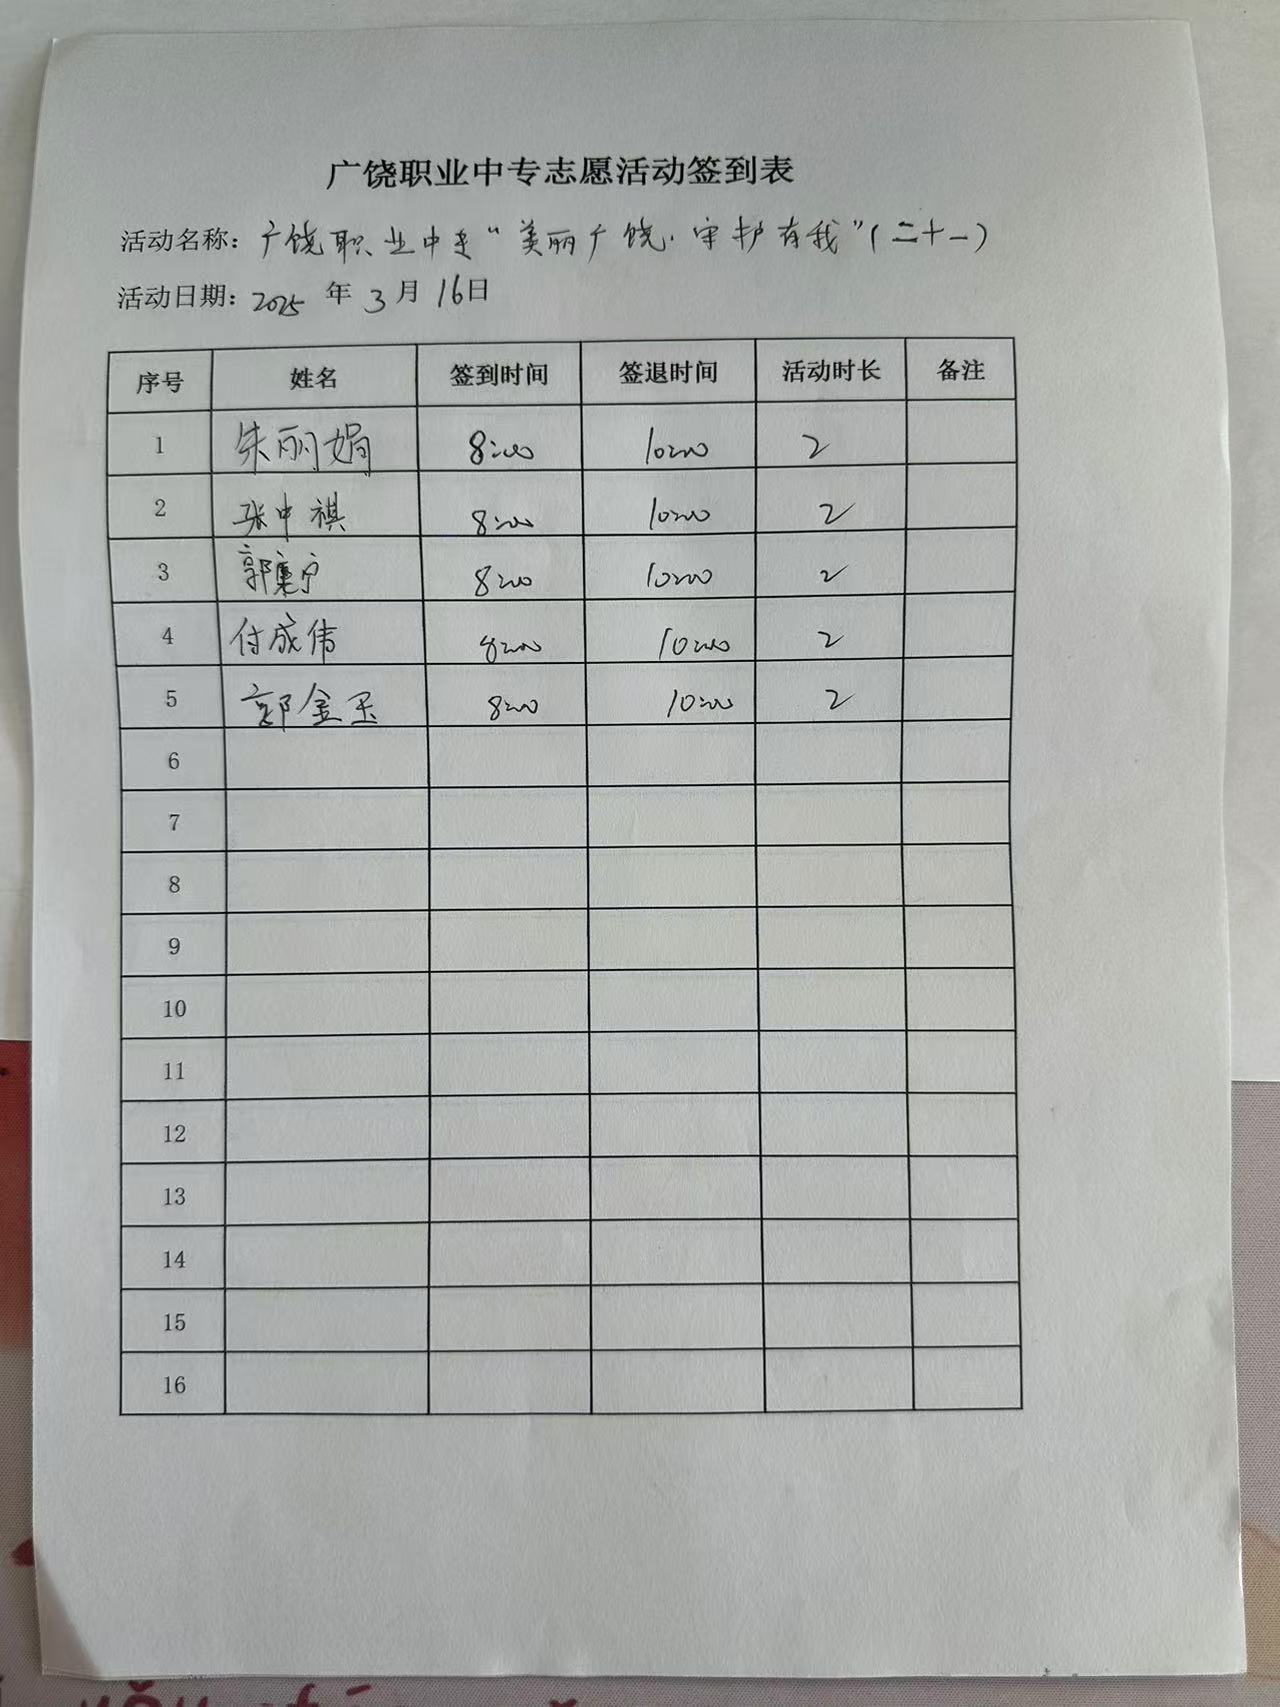 广饶职业中专志愿活动签到表
活动名称：广饶职业中专“美丽广饶，守护有我”（二十一）
活动日期：2025 年 3 月 16日
序号 姓名 签到时间 签退时间 活动时长 备注
1 朱丽娟 8:00 10:00 2
2 张中祺 8:00 10:00 2
3 郭 宁 8:00 10:00 2
4 付成伟 8:00 10:00 2
5 郭金玉 8:00 10:00 2
6
7
8
9
10
11
12
13
14
15
16